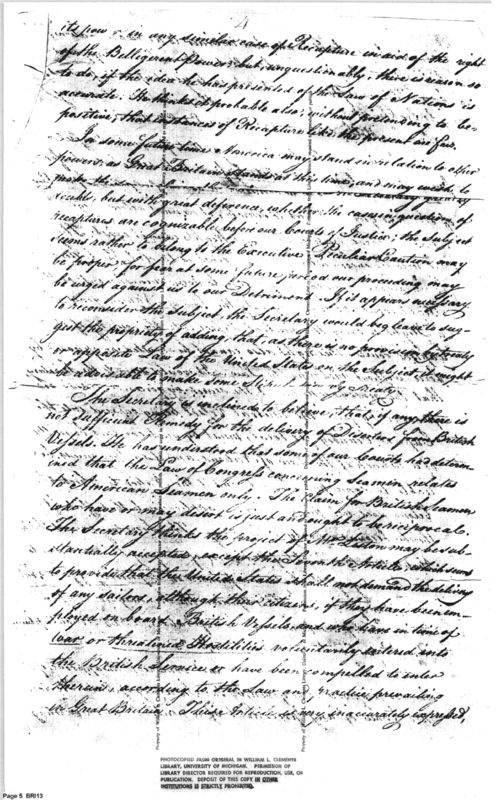 4
its power in any similar case of Recapture in aid of the right
of the Belligerent Powers but unquestionably, there is reason so
to do, if the idea he has presented of the Law of Nations is
accurate. He thinks it probable also, without pretending to be
positive, that instances of Recapture like the present are few.
In some future time America may stand in relation to other
powers, as Great Britain stands at this time, and may wish to
make the same
but with great deference, whether the cases in question of
recaptures are cognizable before our Courts of Justice; the Subject
seems rather to belong to the Executive. Peculiar Caution may
be proper for fear at some future period our proceeding may
be urged against us to our Detriment. If it appears necessary
to reconsider the Subject, the Secretary would beg leave to sug-
gest the propriety of adding, that, as there is no provision by treaty
or apposite Law of the United States on the Subject, it might
be adviseable to make some by treaty
The Secretary is inclined to believe, that, if any, there is
not sufficient Remedy for the delivery of Deserters from British
Vessels. He has understood that some of our Courts had determ-
ined that the Law of Congress concerning Seamen relates
to American Seamen only. The claim for British Seamen
who have or may desert is just and ought to be reciprocal.
The Secretary thinks the project of Mr Liston may be sub-
stantially accepted, except the seventh Article, which seems
to provide that the United States shall not demand the delivery
of any sailors, although their citizens, if they have been em-
ployed on board British Vessels and who have in time of
War or threatened Hostilities voluntarily entered into
the British Service or have been compelled to enter
therein, according to the Law and Practice prevailing
in Great Britain. This Article is very inaccurately expressed,
Property of William L. Clements Library, University of Michigan
PHOTOCOPIED FROM ORIGINAL IN WILLIAM L. CLEMENTS
LIBRARY, UNIVERSITY OF MICHIGAN. PERMISSION OF
LIBRARY DIRECTOR REQUIRED FOR REPRODUCTION, USE, OR
PUBLICATION. DEPOSIT OF THIS COPY IN OTHER
INSTITUTIONS IS STRICTLY PROHIBITED.
Page 5 BRI13